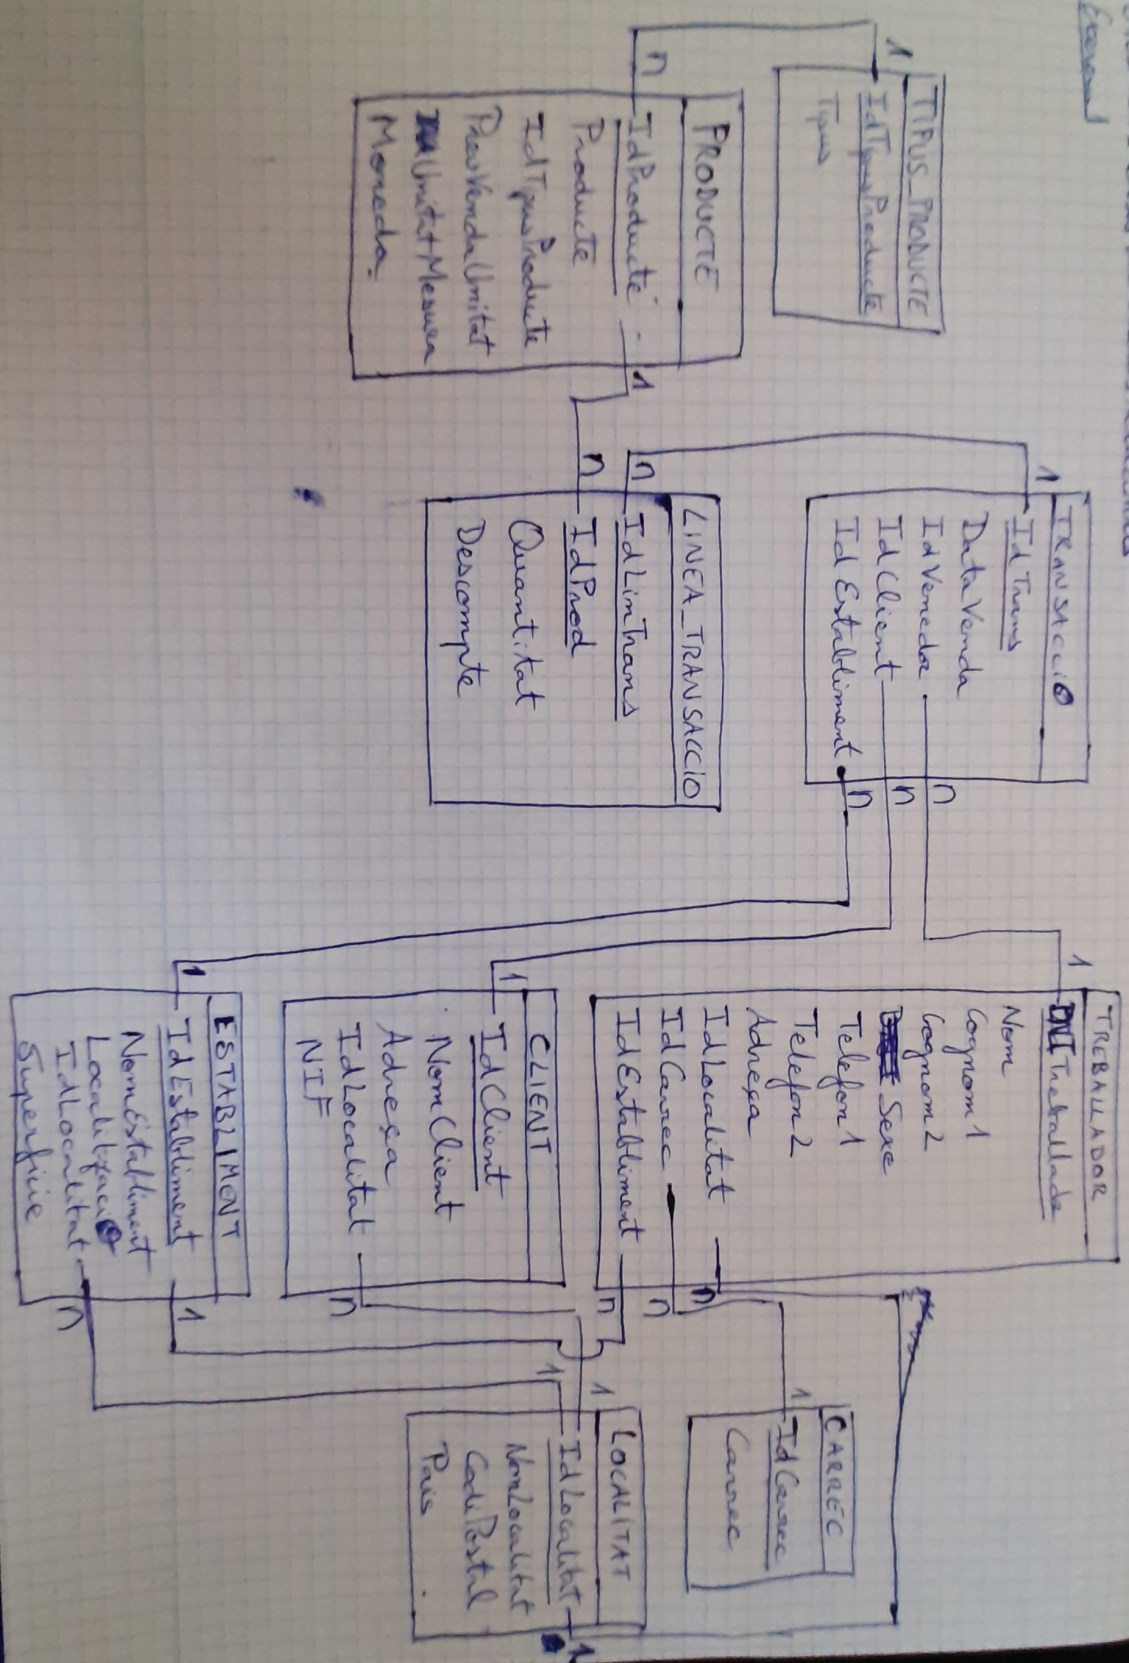 Exercici 1
TIPUS_PRODUCTE
IdTipusProducte
Tipus
1
n
PRODUCTE
IdProducte
Producte
IdTipusProducte
PreuVendaUnitat
UnitatMesura
Moneda
1
n
n
1
TRANSACCIO
IdTrans
DataVenda
IdVenedor
IdClient
IdEstabliment
n
n
n
LINEA_TRANSACCIO
IdLinTrans
IdProd
Quantitat
Descompte
1
TREBALLADOR
IdTreballador
Nom
Cognom1
Cognom2
Sexe
Telefon1
Telefon2
Adreça
IdLocalitat
IdCarrec
IdEstabliment
n
n
n
1
CLIENT
IdClient
NomClient
Adreça
IdLocalitat
NIF
n
1
ESTABLIMENT
IdEstabliment
NomEstabliment
Localització
IdLocalitat
Superficie
1
n
1
CARREC
IdCarrec
Carrec
1
1
LOCALITAT
IdLocalitat
NomLocalitat
CodiPostal
Pais
1